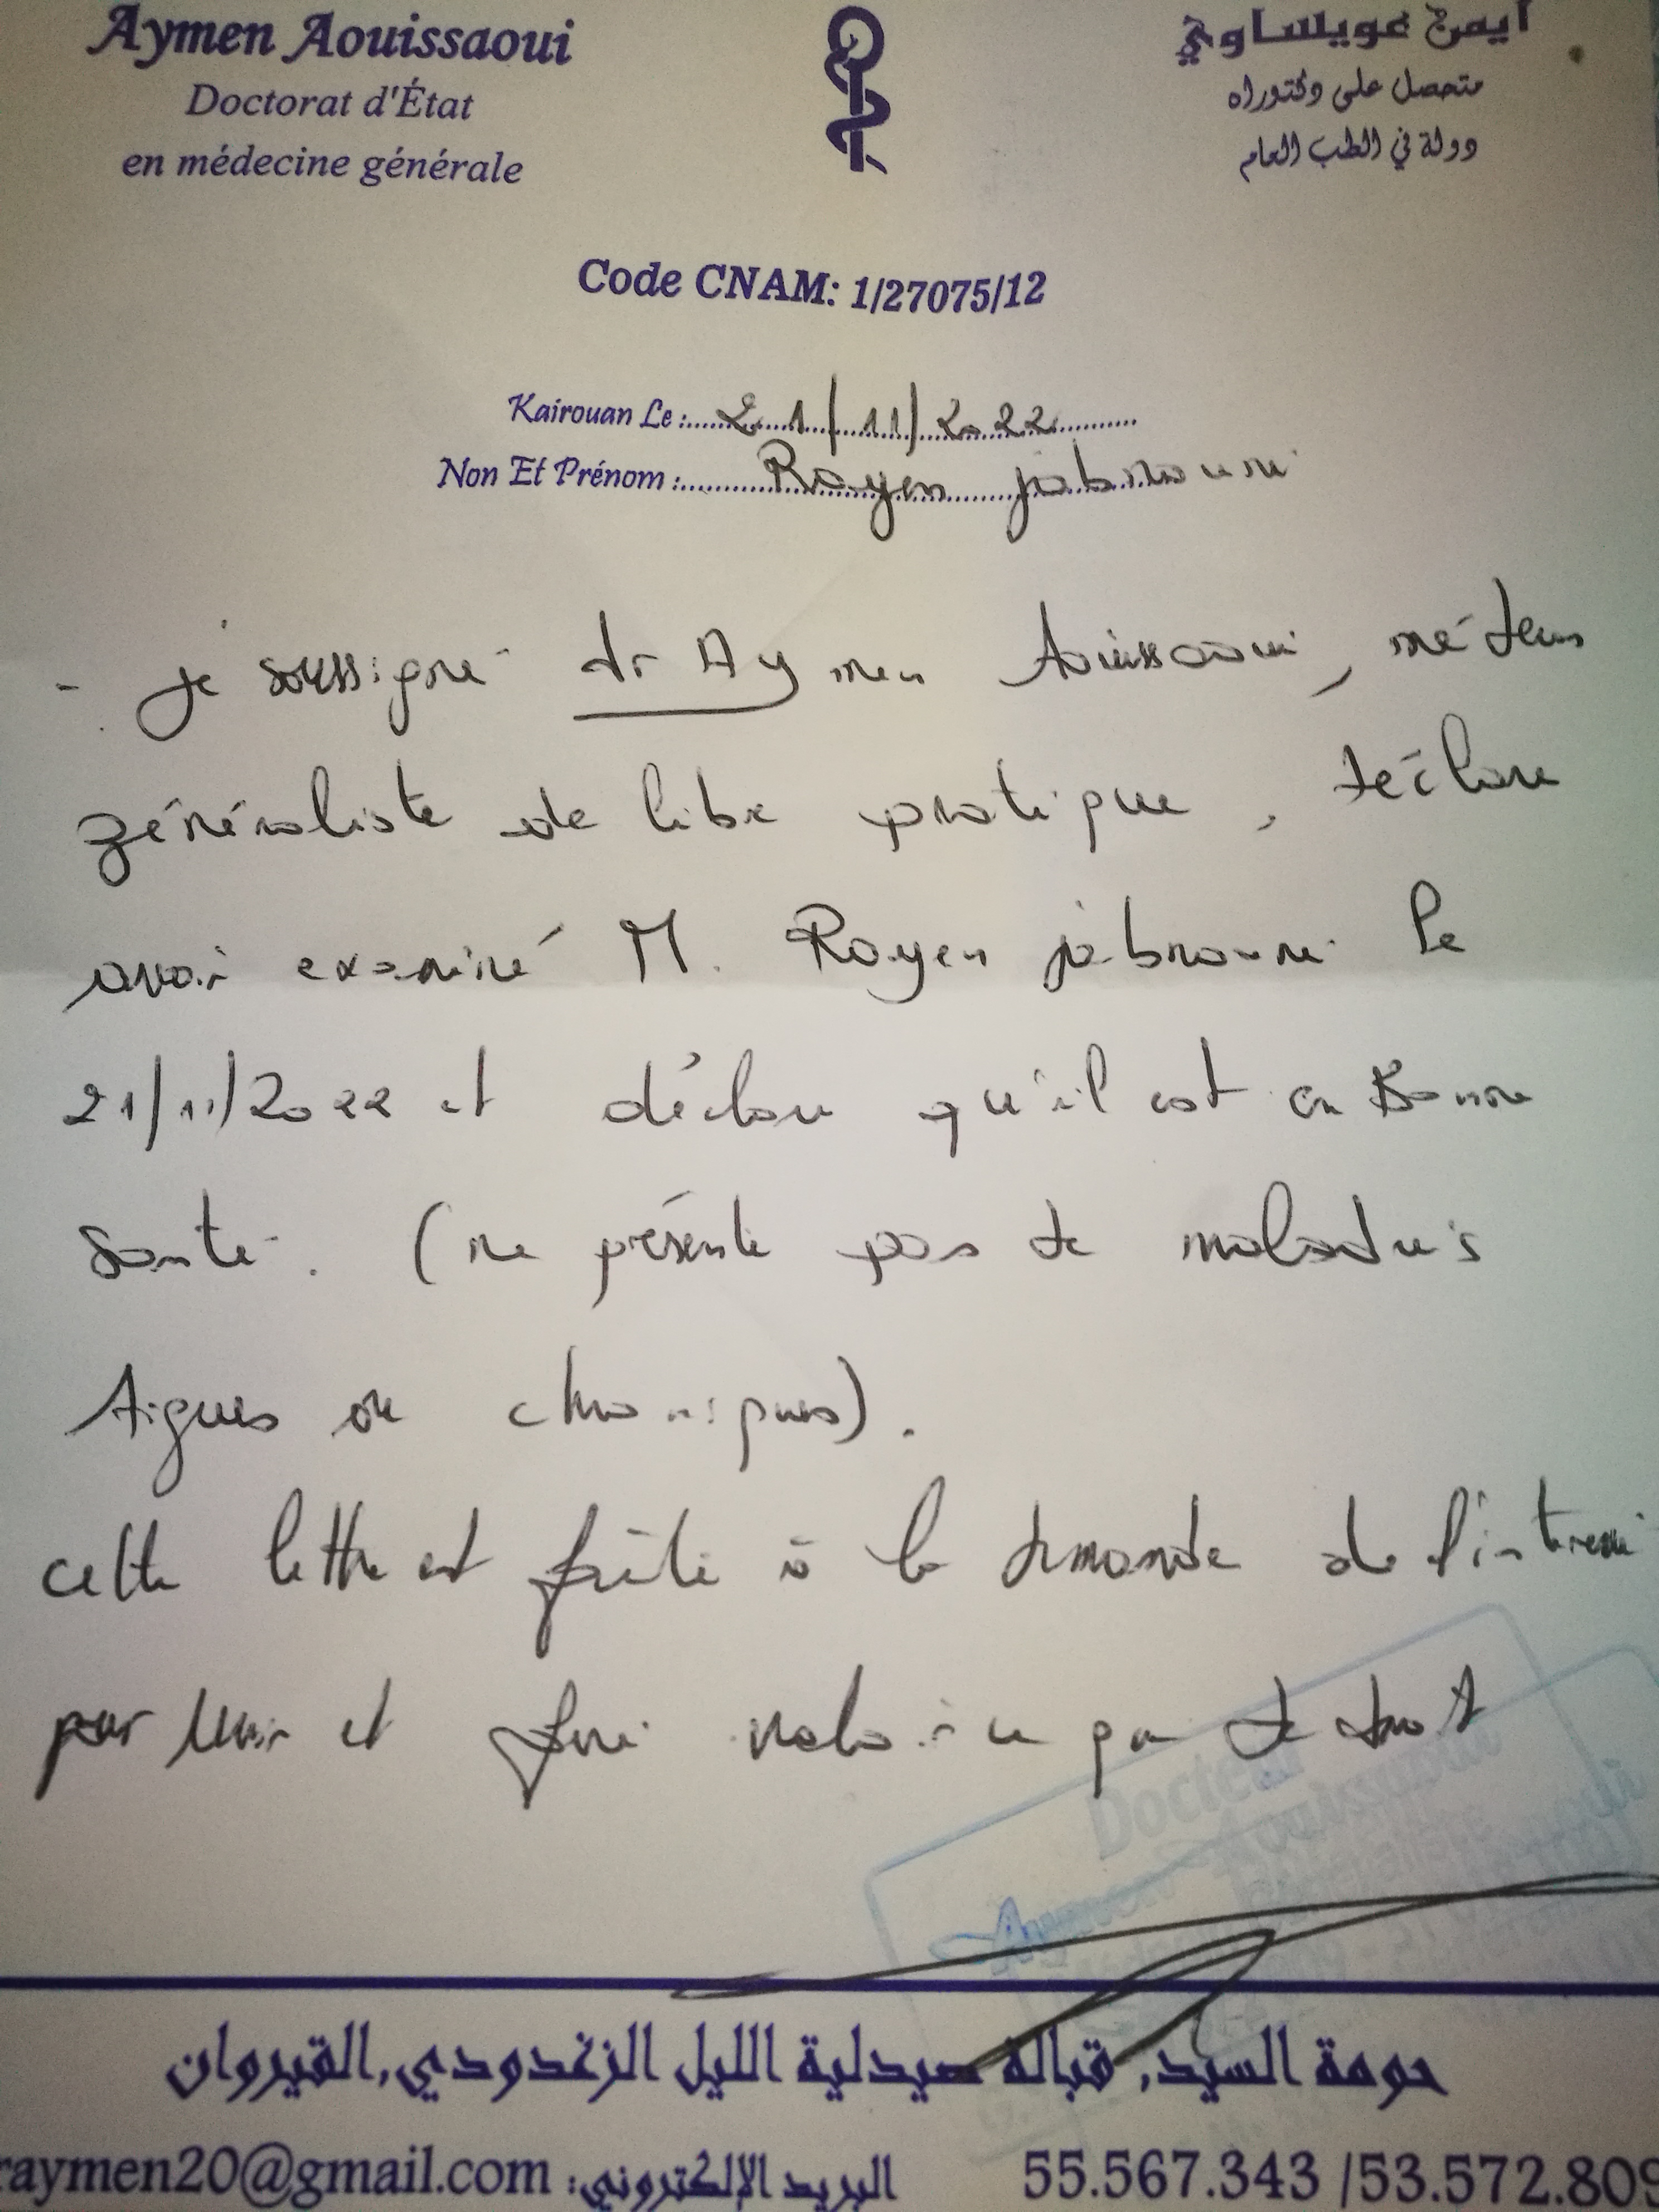 Aymen Aouissaoui
Doctorat d'État
en médecine générale
أيمن عويساوي
متحصل على دكتوراه
دولة في الطب العام
Code CNAM: 1/27075/12
Kairouan Le : 21/11/2022
Non Et Prénom : Rayen jabnouni
- je soussigné dr Aymen Aouissaoui, médecin
généraliste de libre pratique, déclare
avoir examiné M. Rayen jabnouni le
21/11/2022 et déclare qu'il est en Bonne
santé. (ne présente pas de maladies
Aigues ou chroniques).
cette lettre est faite à la demande de l'intéressé
pour servir et faire valoir ce que de droit
Docteur
Aymen Aouissaoui
حومة السيد, قبالة صيدلية الليل الزغدودي, القيروان
raymen20@gmail.com البريد الإلكتروني: 55.567.343 /53.572.809